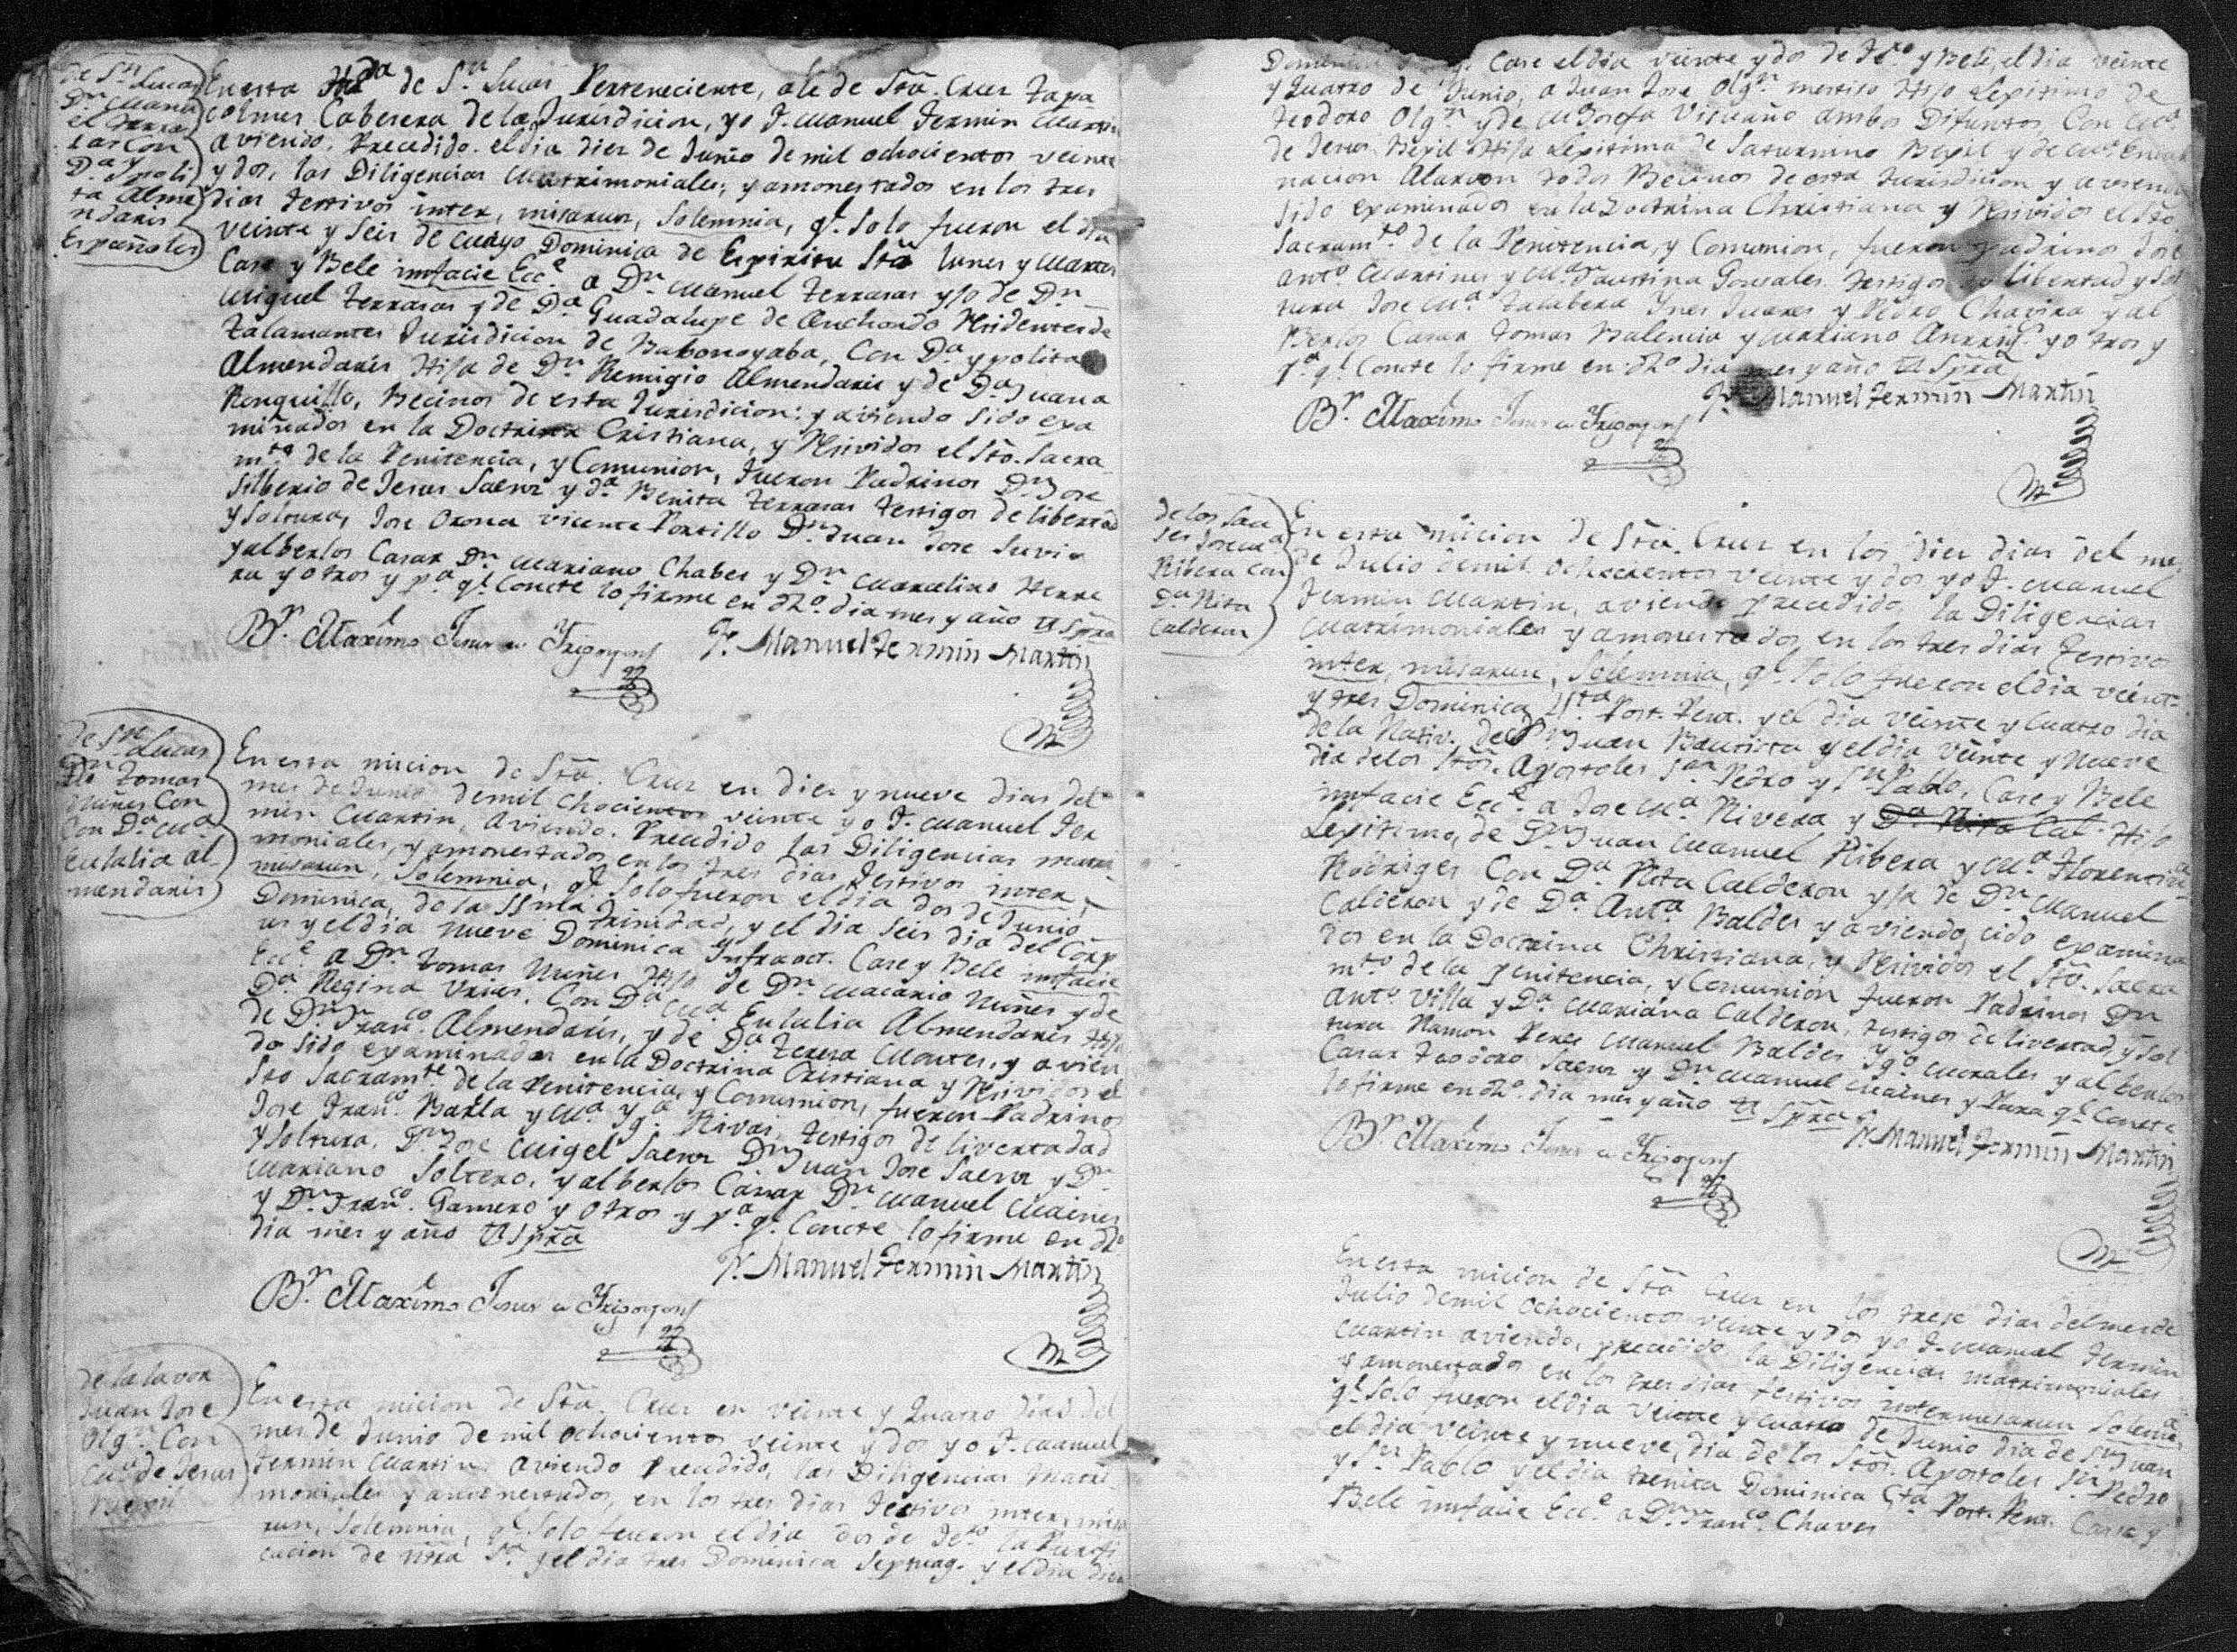 de Sn Lucas
Dn Manu
el Terra
zas con
Da Ypoli
ta Alme
ndaris
Españoles
En esta Hda de Sn Lucas Perteneciente, a la de Sta Cruz Tapa
colmes Cabesera de la Jurisdicion, yo F. Manuel Fermin Martin
aviendo Precedido el dia dies de Junio de mil ochocientos veinte
y dos, las Diligencias Matrimoniales, y amonestados en los tres
dias festivos inter, misarun, solemnia, ql. solo fueron el dia
veinte y seis de Mayo Dominica de Espiritu Sto lunes y Martes
Case y Bele imfacie Ecce. a Dn Manuel Terrasas yjo de Dn
Miguel Terrasas y de Da Guadalupe de Anchondo Residentes de
Talamantes Jurisdicion de Babonoyaba, Con Da ypolita
Almendaris Hija de Dn Remigio Almendaris y de Da Juana
Ronquillo, Becinos de esta Jurisdicion: y aviendo sido exa
minados en la Doctrina Cristiana, y Resividos el Sto. Sacra
mto de la Penitencia, y Comunion, fueron Padrinos Dn Jose
Silberio de Jesus Saenz y Da Benita Terrasas testigos de libertad
y soltura, Jose Orona vicente Portillo Dn Juan Jose Suvia
y alberlos Casar Dn Mariano Chabes y Dn Marcelino Herre
ra y otros y pa ql. Concte lo firme en dho. dia mes y año ut Spra
Br. Maximo Jesus de Yrigoyen Fr. Manuel Fermin Martin
de Sn Lucas
Dn Tomas
Nuñes Con
Con Da Ma
Eulalia al-
mendaris
En esta micion de Sta. Cruz en dies y nueve dias del
mes de Junio demil chocientos veinte yo F. Manuel Fer
min Martin, Aviendo. Precedido las Diligencias matri
moniales, y amonestados en los tres dias festivos inter,
misarun, Solemnia, ql solo fueron el dia dos de Junio
Dominica, de la SSma trinidad, y el dia seis dia del Corp
us y el dia Nueve Dominica Ynfraoct. Case y Bele imfacie
Ecce. a Dn Tomas Nuñes Hijo de Dn Macario Nuñes y de
Da Regina Urias. Con Da Ma Eulalia Almendaris Hija
de Dn Franco. Almendaris, y de Da Teresa Montes, y avien
do sido examinados en la Doctrina Cristiana y Resividos el
Sto Sacramte. de la Penitencia, y Comunion, fueron Padrinos
Jose Franco. Barla y Ma Yga. Rivas, testigos de livertadad
y soltura, Dn Jose Migel Saenz Dn Juan Jose Saenz y Dn
Mariano Soltero, y alberlos Casar Dn Manuel Maines
y Dn Franco. Gamero y otros y pa. ql. Concte lo firme en dho
dia mes y año Ut Spra
Fr. Manuel Fermin Martin
Br. Maximo Jesus de Yrigoyen
de la lavor
Juan Jose
Olgn. Con
Ma. de Jesus
Bejil
En esta micion de Sta. Cruz en veinte y Quatro dias del
mes de Junio de mil ochocientos veinte y dos yo F. Manuel
Fermin Martin. aviendo Precedido, las Diligencias Matri
moniales y amonestados, en los tres dias festivos inter, misa
run, Solemnia, ql. Solo fueron el dia dos de Feo. la Purifi
cacion de Ntra Sa. y el dia tres Dominica Septuag. y el dia dies
Dominica ql. Case el dia veinte y dos de Feo. y Bele, el dia veinte
y Quatro de Junio, a Juan Jose Olgn. mestiso Hijo Lexitimo de
Teodoro Olgn y de Ma Josefa Viscaño ambos Difuntos, Con Ma.
de Jesus Bejil Hija Lexitima de Saturnino Bejil y de Ma Encar
nacion Alarcon todos Becinos de esta Jurisdicion y aviendo
sido examinados en la Doctrina Christiana y Resividos el Sto.
Sacramto. de la Penitencia, y Comunion, fueron padrinos Jose
Anto. Martines y Ma Faustina Gonsales. testigos de libertad y Sol
tura Jose Ma. Talabera Ynes Juares y Pedro Chavira y al
Berlos Casar Tomas Balencia y Mariano Anrrigs. y otros y
pa. ql. Concte lo firme en dho dia mes y año Ut Spra
Fr. Manuel Fermin Martin
Br. Maximo Jesus de Yrigoyen
de los Sau
ses Jose Ma
Ribera con
Da Rita
Calderon
En esta micion de Sta. Cruz en los dies dias del mes
de Julio demil ochocientos veinte y dos yo F. Manuel
Fermin Martin, aviendo precedido, la Diligencias
Matrimoniales y amonestados, en los tres dias festivos
inter, misarun, Solemnia, ql. solo fueron el dia veint-
y tres Dominica 4ta Post. Pent. y el dia veinte y Cuatro dia
de la Nativ. de Sn Juan Bautista y el dia veinte y Nueve
dia delos Stos. Apostoles San Pedro y Sn Pablo, Case y Bele
imfacie Ecce. a Jose Ma. Rivera y Da Rita Cal. Hijo
Lexitimo, de Dn Juan Manuel Ribera y Ma. Florentina
Rodriges Con Da Rita Calderon yja de Dn Manuel
Calderon y de Da. Anta Baldes y aviendo, cido examina
dos en la Doctrina Christiana, y Resividos el Sto. Sacra
mto de la penitencia, y Comunion fueron Padrinos Dn
Anto Villa y Da Mariana Calderon, testigos de livertad, y sol
tura Ramon Peres Manuel Baldes Ygo. Morales y al berlos
Casar Teodoro Saenz y Dn Manuel Maines y Para ql. Concte
lo firme en dho. dia mes y año Ut Spra
Fr. Manuel Fermin Martin
Br. Maximo Jesus de Yrigoyen
En esta micion de Sta Cruz en los trese dias del mes de
Julio demil ochocientos veinte y dos yo F. Manuel Fermin
Martin aviendo, precedido la Diligencias matrimoniales
y amonestados en los tres dias festivos intermisarun Solemnia
ql. solo fueron el dia veinte y cuatro de Junio dia de Sn Juan
el dia veinte y nueve, dia de los Stos. Apostoles Sn Pedro
y Sn Pablo y el dia treinta Dominica 5ta Post. Pent. Case y
Bele imfacie Ecce a Dn Franco. Chaves